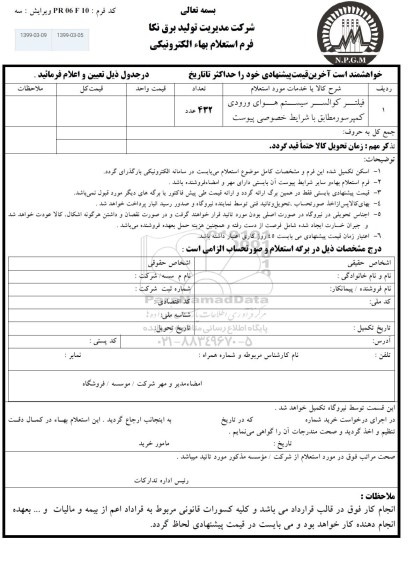 بسمه تعالی
کد فرم : PR 06 F 10 ویرایش : سه
شرکت مدیریت تولید برق نکا
فرم استعلام بهاء الکترونیکی
1399-03-09
1399-03-05
N.P.G.M
خواهشمند است آخرین قیمت پیشنهادی خود را حداکثر تا تاریخ درجدول ذیل تعیین و اعلام فرمائید .
ردیف شرح کالا یا خدمات مورد استعلام تعداد قیمت واحد قیمت کل ملاحظات
۱ فیلتـر کوالسـر سیسـتم هـوای ورودی کمپرسورمطابق با شرایط خصوصی پیوست ۴۳۲ عدد
جمع کل به حروف:
تذکر مهم : زمان تحویل کالا حتماً قید گردد.
توضیحات:
۱- اسکن تکمیل شده این فرم و مشخصات کامل موضوع استعلام می‌بایست در سامانه الکترونیکی بارگذاری گردد.
۲- فرم استعلام بهاءو سایر شرایط پیوست آن بایستی دارای مهر و امضاءفروشنده باشد .
۳- قیمت پیشنهادی بایستی فقط در همین برگ ارائه گردد و ارائه قیمت طی پیش فاکتور یا برگه های دیگر مورد قبول نمی‌باشد.
۴- بهای‌کالاپس‌ازاخذ صورتحساب ،تحویل‌وتائید فنی توسط نماینده نیروگاه و صدور رسید انبار پرداخت خواهد شد .
۵- اجناس تحویلی در نیروگاه در صورت اصلی بودن مورد تائید قرار خواهند گرفت و در صورت نقصان و داشتن هرگونه اشکال، کالا عودت خواهد شد و جبران خسارت ایجاد شده شامل فرصت از دست رفته و همچنین هزینه حمل بعهده فروشنده می‌باشد .
۶- اعتبار زمان قیمت پیشنهادی می بایست ۴۵ روز کاری اعتبار داشته باشد.
درج مشخصات ذیل در برگه استعلام و صورتحساب الزامی است :
اشخاص حقیقی اشخاص حقوقی
نام و نام خانوادگی : نام م سسه/ شرکت :
نام فروشنده / پیمانکار: شماره ثبت شرکت :
کد ملی: کد اقتصادی:
شناسه ملی:
تاریخ تکمیل : تاریخ تحویل:
آدرس: کد پستی :
تلفن : نام کارشناس مربوطه و شماره همراه : نمابر :
ParsNamadData
۰۲۱-۸۸۳۴۹۶۷۰-۵
امضاءمدیر و مهر شرکت / موسسه / فروشگاه
این قسمت توسط نیروگاه تکمیل خواهد شد .
در اجرای درخواست خرید شماره که در تاریخ به اینجانب ارجاع گردید . این استعلام بهـاء در کمـال دقـت تنظیم و اخذ گردید و صحت مندرجات آن را گواهی می‌نمایم .
تاریخ : مامور خرید
صحت مراتب فوق در مورد استعلام از شرکت / مؤسسه مذکور مورد تائید میباشد .
رئیس اداره تدارکات
ملاحظات :
انجام کار فوق در قالب قرارداد می باشد و کلیه کسورات قانونی مربوط به قراداد اعم از بیمه و مالیات و ... بعهده انجام دهنده کار خواهد بود و می بایست در قیمت پیشنهادی لحاظ گردد.